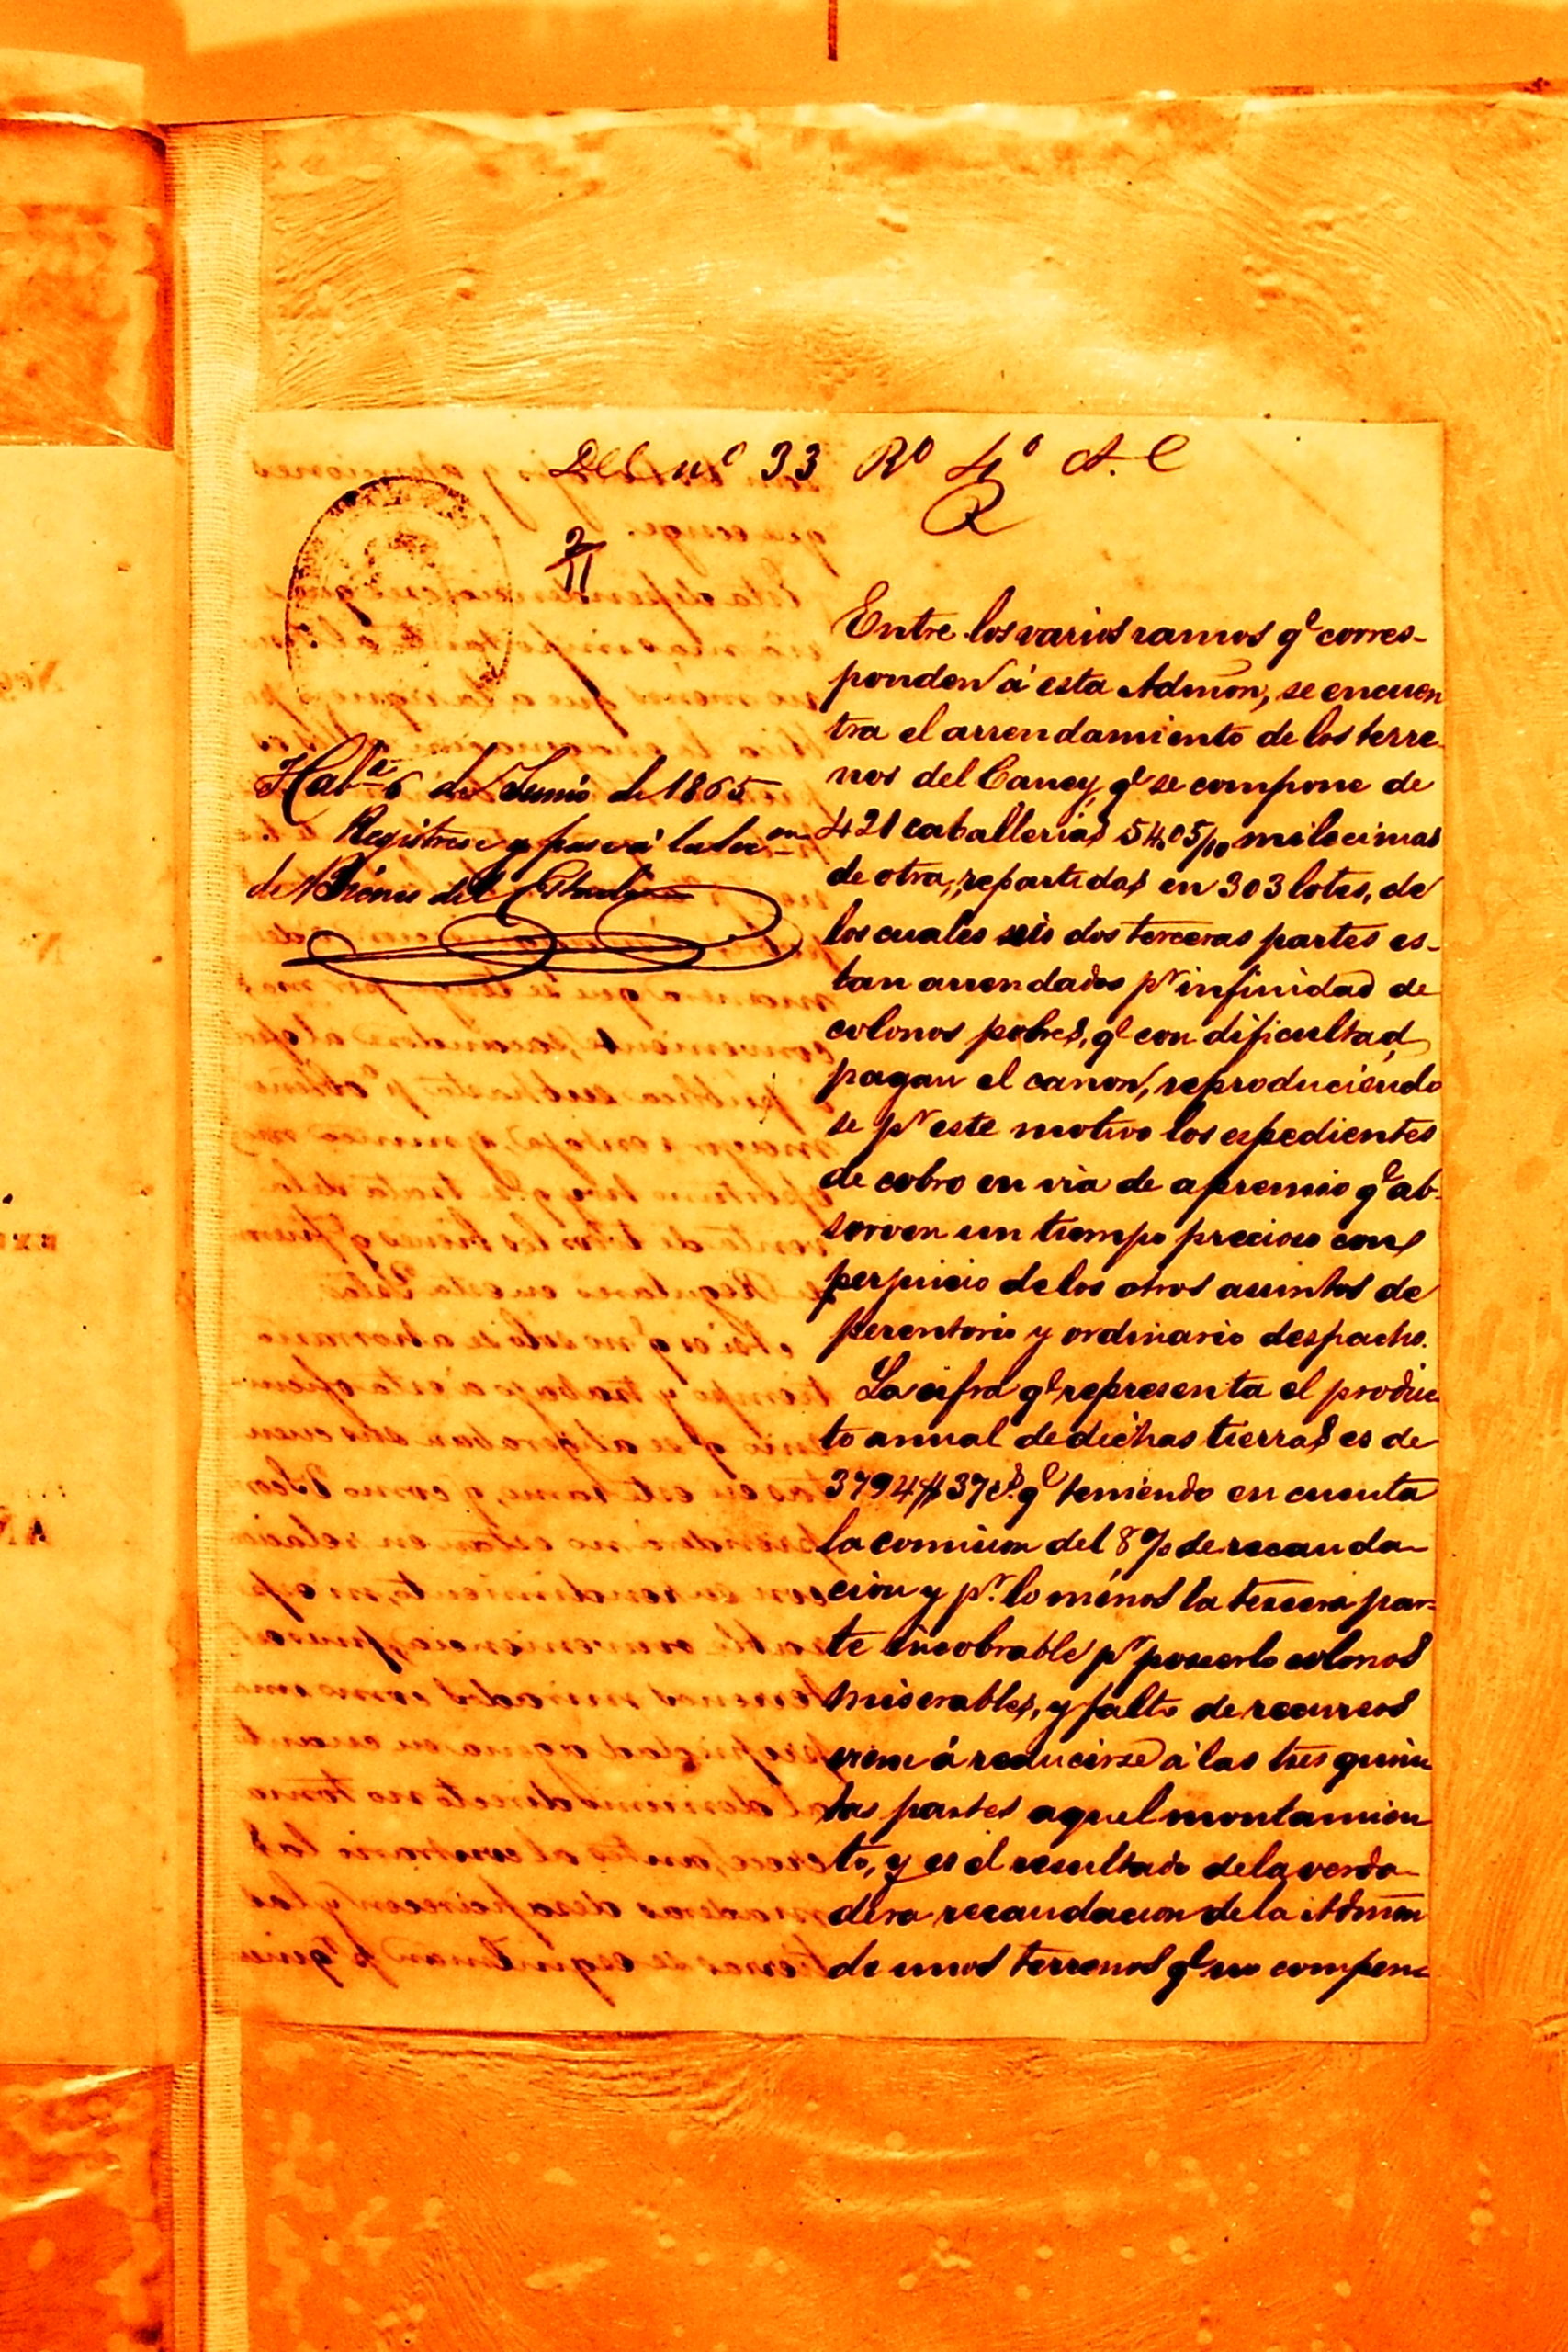 Del nº 33 Rº 4º A. C
2/11
Habª 6 de Junio de 1865
Registrese y pase á la Secon
de Bienes del Estado
Entre los varios ramos qe corres-
ponden á esta Admon, se encuen
tra el arrendamiento de los terre
nos del Caney, qe se compone de
421 caballerias 5405/10 milecimas
de otra, repartidas en 303 lotes, de
los cuales sus dos terceras partes es-
tan arrendados pr infinidad de
colonos pobres, qe con dificultad
pagan el canon, reproduciendo
se pr este motivo los espedientes
de cobro en via de apremio qe ab-
sorven un tiempo precioso con
perjuicio de los otros asuntos de
perentorio y ordinario despacho.
La cifra qe representa el produc
to anual de dichas tierras es de
3794$ 37 cs. qe teniendo en cuenta
la comision del 8 % de recauda-
cion y pr. lo ménos la tercera par-
te incobrable pr poseerlo colonos
miserables, y falto de recursos
viene á reducirse á las tres quin
tas partes aquel montamien
to, y es el resultado de la verda-
dera recaudacion de la Admon
de unos terrenos qe no compen-